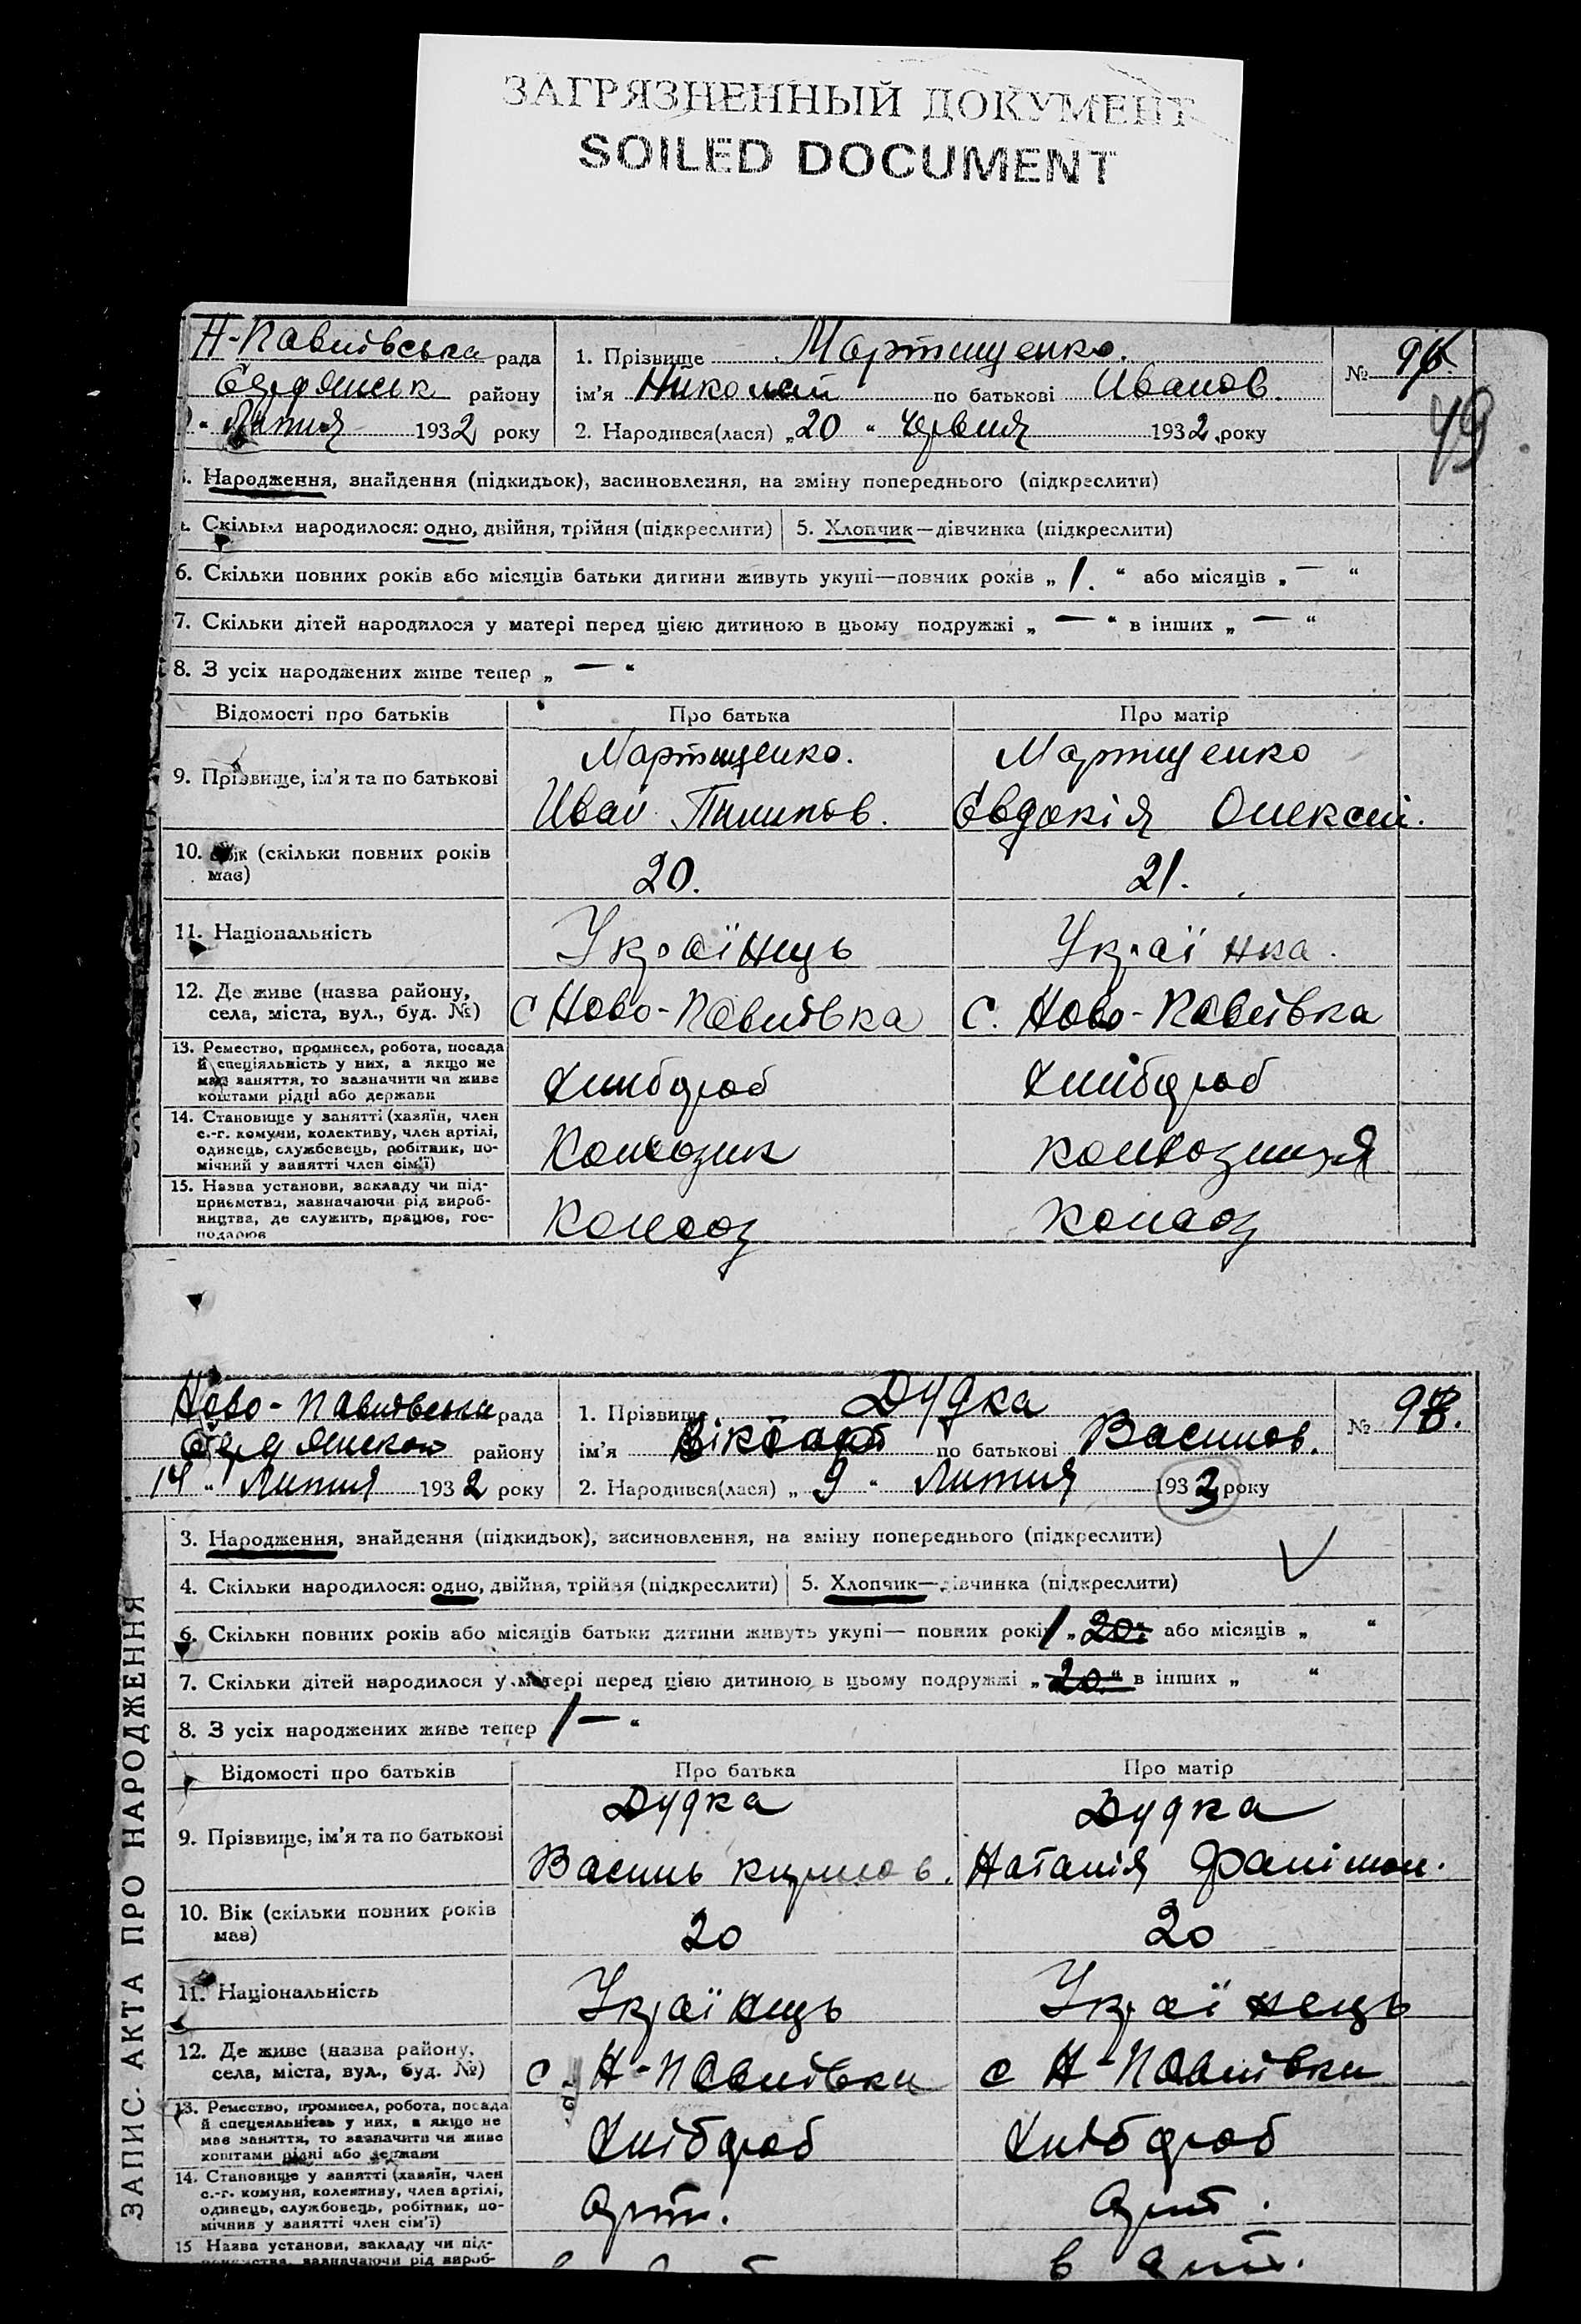 ЗАГРЯЗНЕННЫЙ ДОКУМЕНТ
SOILED DOCUMENT
Н-Павлівська рада
Бердянськ району
Липня 1932 року
1. Прізвище Мартищенко.
ім'я Николай по батькові Иванов.
2. Народився(лася) „20“ Червня 1932 року
№
49
Народження, знайдення (підкидьок), засиновлення, на зміну попереднього (підкреслити)
Скільки народилося: одно, двійня, трійня (підкреслити)
5. Хлопчик—дівчинка (підкреслити)
6. Скільки повних років або місяців батьки дитини живуть укупі—повних років „ 1. “ або місяців „ — “
7. Скільки дітей народилося у матері перед цією дитиною в цьому подружжі „ — “ в інших „ — “
8. З усіх народжених живе тепер „ — “
Відомості про батьків Про батька Про матір
9. Прізвище, ім'я та по батькові
Мартищенко.
Иван Пилипов.
Мартищенко
Євдокія Олексій.
10. Вік (скільки повних років має)
20.
21.
11. Національність
Українець
Українка.
12. Де живе (назва району,
села, міста, вул., буд. №)
С Ново-Павлівка
С. Ново-Павлівка
13. Ремество, промисел, робота, посада
й спеціяльність у них, а якщо не
має заняття, то зазначити чи живе
коштами рідні або держави
Хлибороб
Хлибороб
14. Становище у занятті (хазяїн, член
с.-г. комуни, колективу, член артілі,
одинець, службовець, робітник, по-
мічний у занятті член сім'ї)
Колхозник
колхозниця
15. Назва установи, закладу чи під-
приємства, зазначаючи рід вироб-
ництва, де служить, працює, гос-
подарює
Колхоз
Колхоз
Ново-Павлівська рада
району
14 “ Липня 1932 року
1. Прізвище Дудка
ім'я по батькові Василов.
2. Народився(лася) „ 9 “ Липня 1932 року
№ 98.
ЗАПИС АКТА ПРО НАРОДЖЕННЯ
3. Народження, знайдення (підкидьок), засиновлення, на зміну попереднього (підкреслити)
4. Скільки народилося: одно, двійня, трійня (підкреслити)
5. Хлопчик—дівчинка (підкреслити)
6. Скільки повних років або місяців батьки дитини живуть укупі— повних років 1 „20“ або місяців „ “
7. Скільки дітей народилося у матері перед цією дитиною в цьому подружжі „20“ в інших „ “
8. З усіх народжених живе тепер 1 — “
Відомості про батьків Про батька Про матір
9. Прізвище, ім'я та по батькові
Дудка
Василь Кирилов.
Дудка
Наталія Филімон.
10. Вік (скільки повних років має)
20
20
11. Національність
Українець
Українець
12. Де живе (назва району,
села, міста, вул., буд. №)
с Н-Павлівки
с Н-Павлівки
13. Ремество, промисел, робота, посада
й спеціяльність у них, а якщо не
має заняття, то зазначити чи живе
коштами рідні або держави
Хлібороб
Хлібороб
14. Становище у занятті (хазяїн, член
с.-г. комуни, колективу, член артілі,
одинець, службовець, робітник, по-
мічний у занятті член сім'ї)
Арт.
Арт.
15 Назва установи, закладу чи під-
приємства, зазначаючи рід вироб-
в Арт.